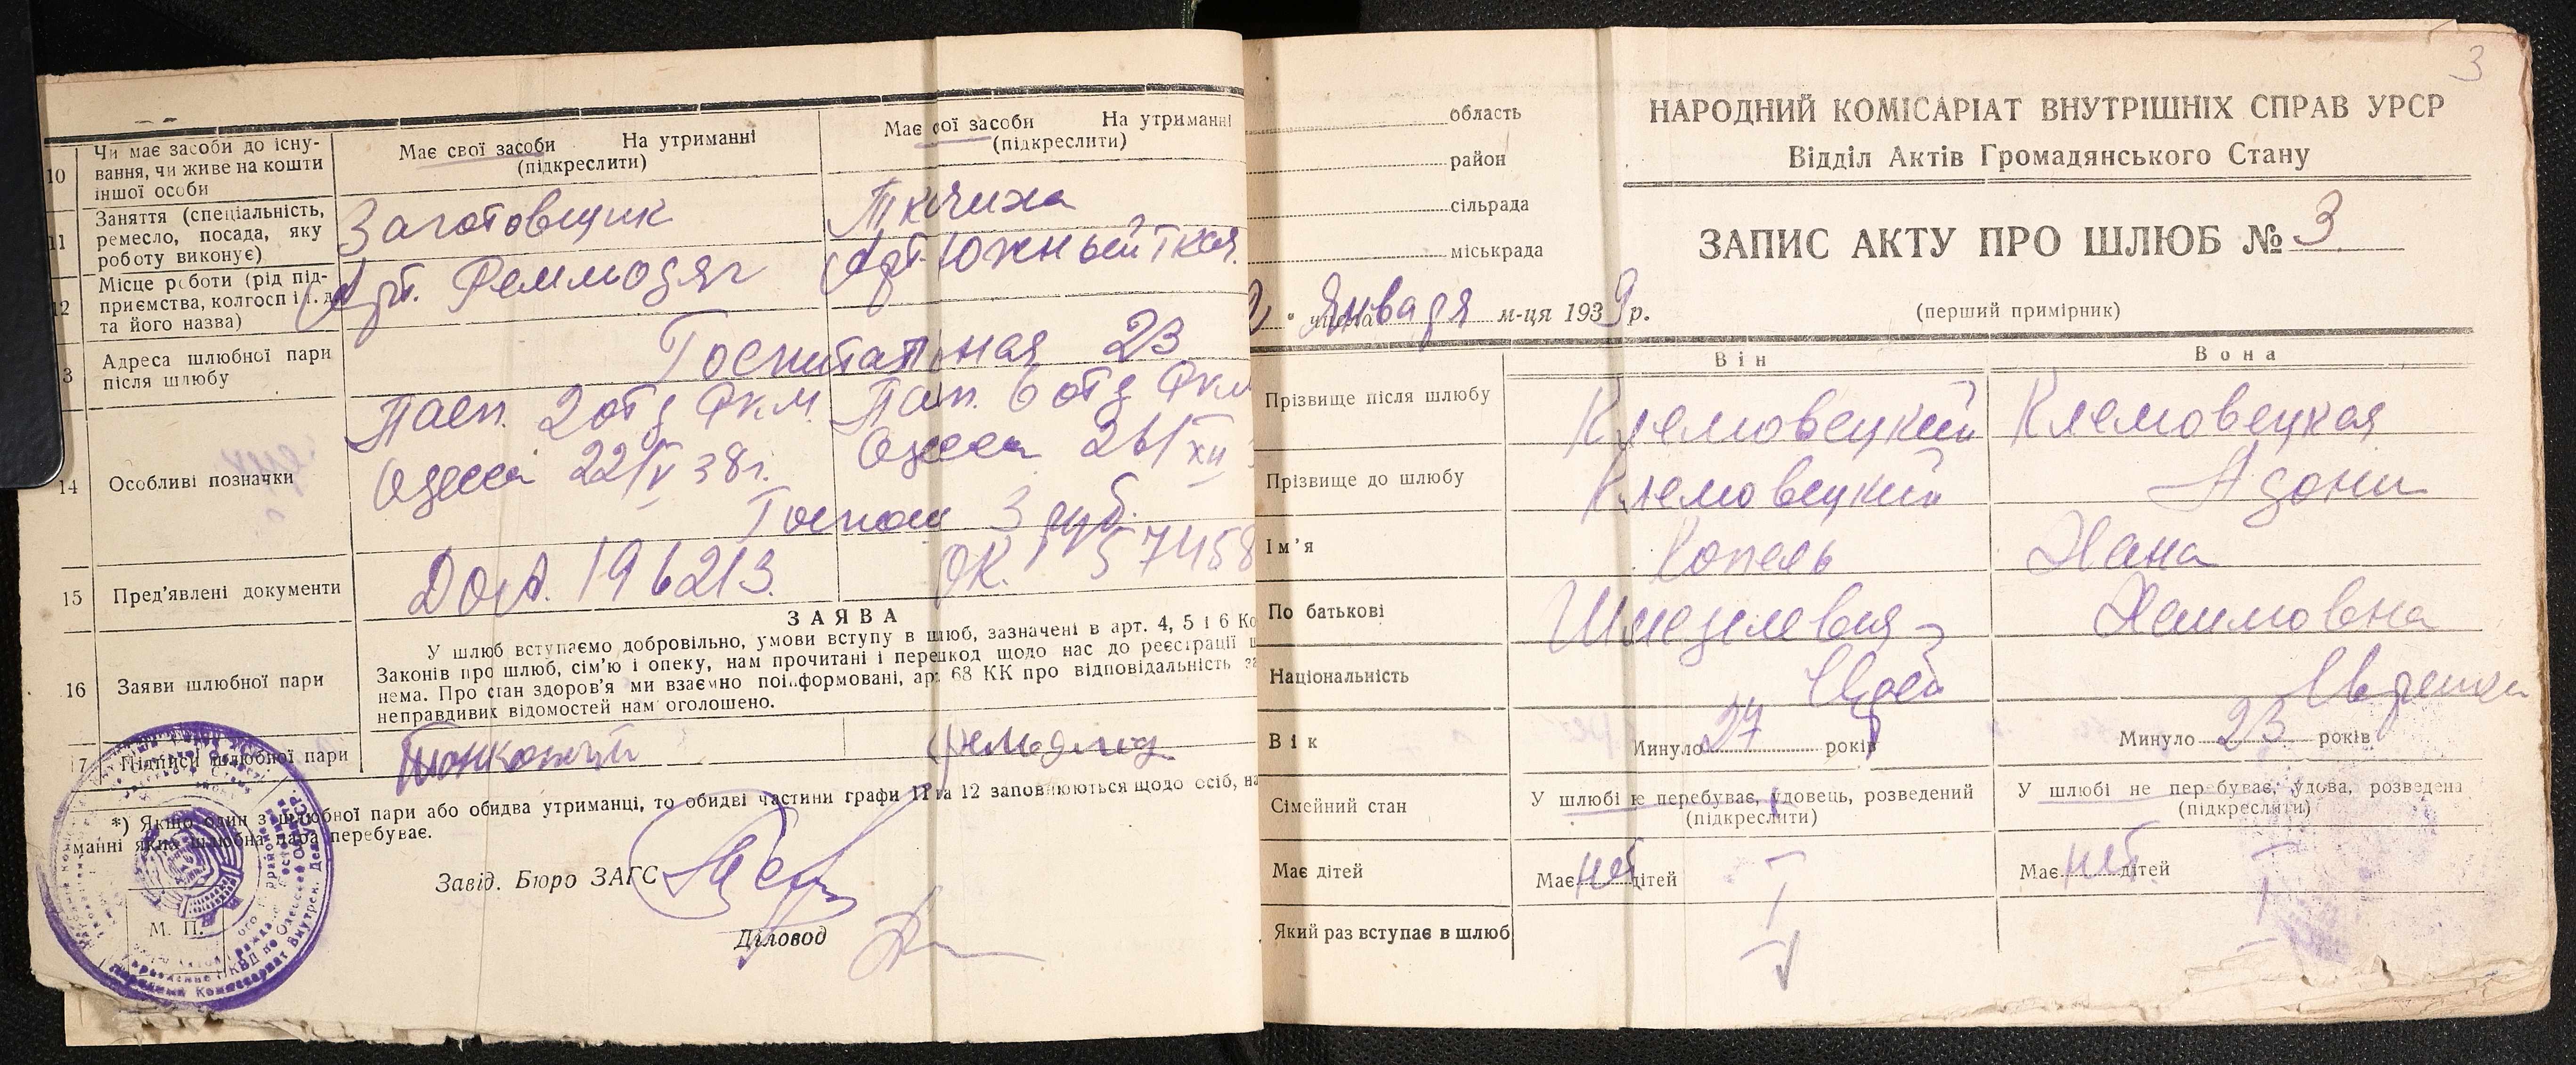 10
Чи має засоби до існу-
вання, чи живе на кошти
іншої особи
Має свої засоби На утриманні
(підкреслити)
Має свої засоби На утриманні
(підкреслити)
11
Заняття (спеціальність,
ремесло, посада, яку
роботу виконує)
Заготовщик
Ткачиха
12
Місце роботи (рід під-
приємства, колгосп і т. д.
та його назва)
Арт.
Арт. Южный ткач.
3
Адреса шлюбної пари
після шлюбу
Госпитальная 23
14
Особливі позначки
Пасп. 2 отд РКМ
Одесса 22/V 38г.
Пасп. 6 отд РКМ
Одесса 26/XII
3 руб.
15
Пред'явлені документи
196213.
57458
16
Заяви шлюбної пари
ЗАЯВА
У шлюб вступаємо добровільно, умови вступу в шлюб, зазначені в арт. 4, 5 і 6 Ко
Законів про шлюб, сім'ю і опеку, нам прочитані і перешкод щодо нас до реєстрації ш
нема. Про стан здоров'я ми взаємно поінформовані, арт. 68 КК про відповідальність за
неправдивих відомостей нам оголошено.
17
Підписи шлюбної пари
*) Якщо один з шлюбної пари або обидва утриманці, то обидві частини графи 11 та 12 заповнюються щодо осіб, на
манні яких шлюбна пара перебуває.
Завід. Бюро ЗАГС
М. П.
Діловод
3
область
район
сільрада
міськрада
НАРОДНИЙ КОМІСАРІАТ ВНУТРІШНІХ СПРАВ УРСР
Відділ Актів Громадянського Стану
ЗАПИС АКТУ ПРО ШЛЮБ № 3.
(перший примірник)
" числа Января м-ця 1939 р.
Він
Вона
Прізвище після шлюбу
Клемовецкий
Клемовецкая
Прізвище до шлюбу
Клемовецкий
Адони
Ім'я
Копель
Хана
По батькові
Хаимовна
Національність
Еврей
Еврейка
Вік
Минуло 27 років
Минуло 23 років
Сімейний стан
У шлюбі не перебуває, удовець, розведений
(підкреслити)
У шлюбі не перебуває, удова, розведена
(підкреслити)
Має дітей
Має нет дітей
Має нет дітей
Який раз вступає в шлюб
I
I